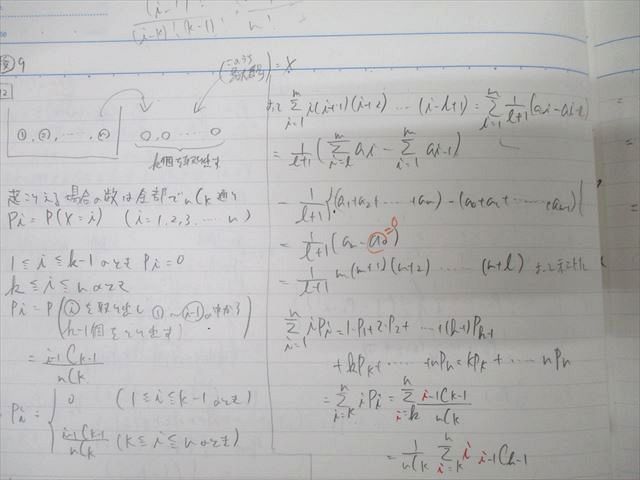 9
12
①,②,……,ⓝ
0,0……0
k個を取り出す
= X
起こりうる場合の数は全部で nCk 通り
Pi = P(X=i) (i=1,2,3,…… n)
1≦i≦k-1のとき Pi=0
k≦i≦nのとき
Pi = P(ⓘを取り出し ①~(i-1)の中から
k-1個をとり出す)
= i-1Ck-1 / nCk
Pi = { 0 (1≦i≦k-1のとき)
i-1Ck-1 / nCk (k≦i≦nのとき)
Σ_{i=1}^{n} i(i+1)(i+2) …… (i-l+1) = Σ_{i=1}^{n} 1/(l+1) (ai-ai-1)
= 1/(l+1) (Σ_{i=l}^{n} ai - Σ_{i=1}^{n} ai-1)
= 1/(l+1) {(a1+a2+ …… +an) - (a0+a1+ …… +an-1)}
= 1/(l+1) (an - a0) =0
= 1/(l+1) n(n+1)(n+2) …… (n+l)
Σ_{i=1}^{n} iPi = 1・P1+2・P2+ …+(k-1)Pk-1
+kPk+ …… +nPn = kPk + …… nPn
= Σ_{i=k}^{n} iPi = Σ_{i=k}^{n} i-1Ck-1 / nCk
= 1/nCk Σ_{i=k}^{n} i i-1Ck-1